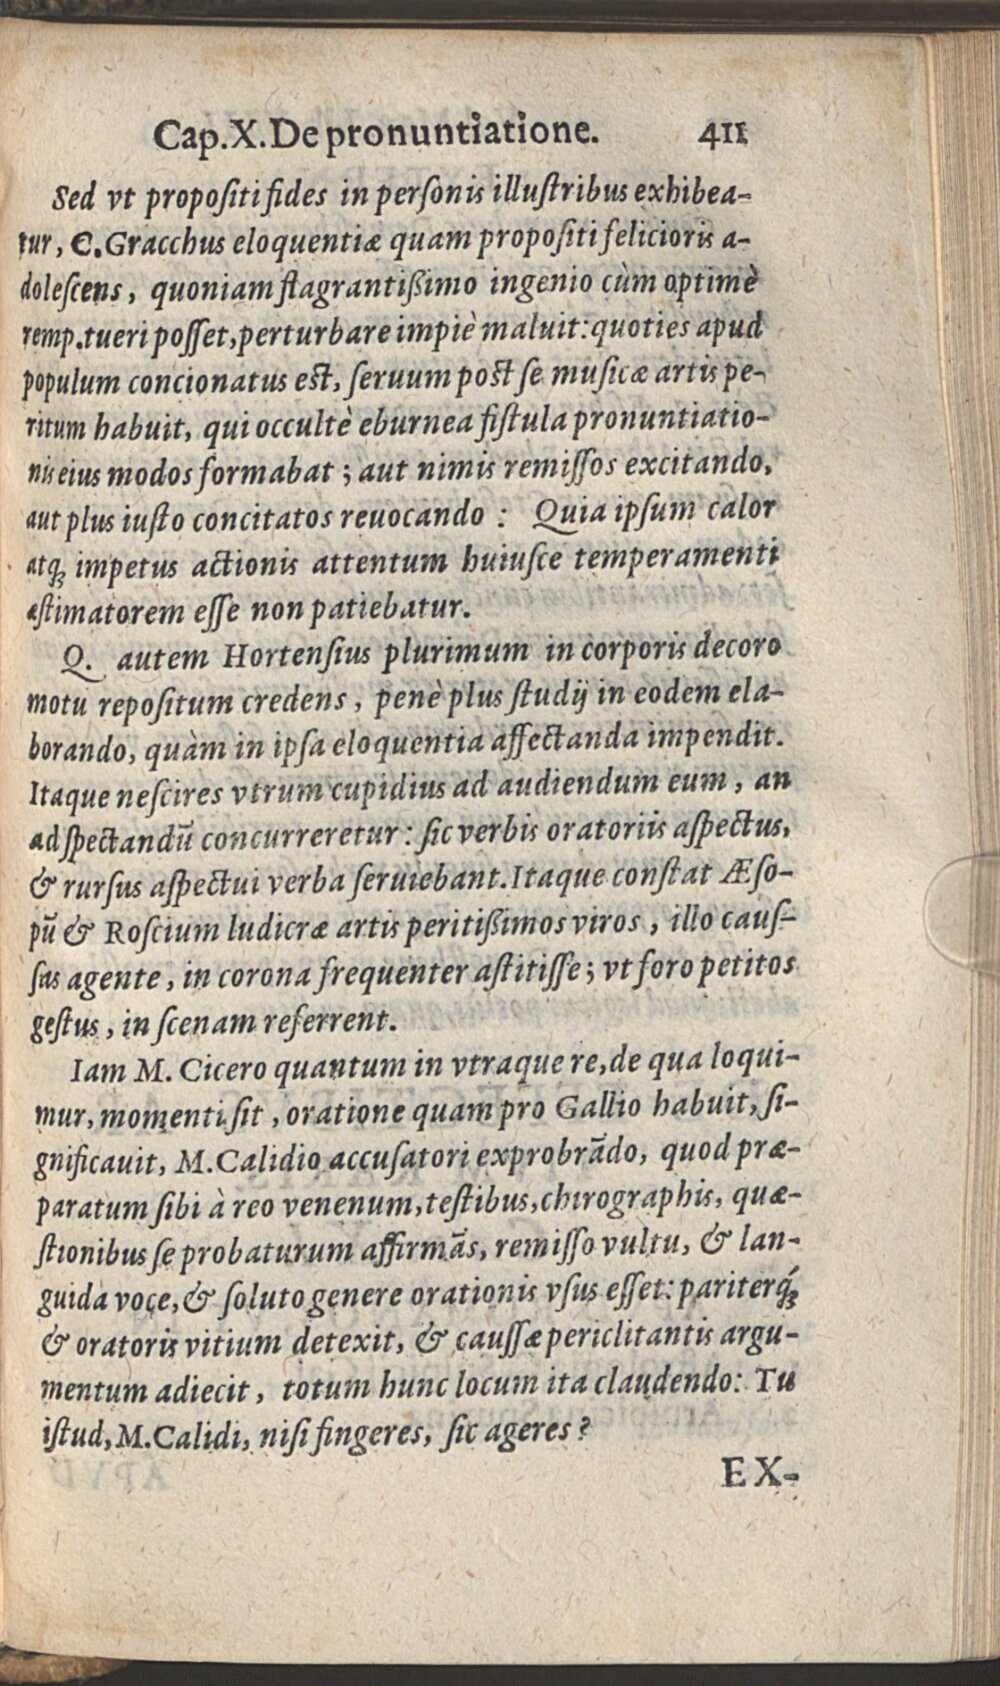 Cap.X.De pronuntiatione. 411
Sed vt propositi fides in personis illustribus exhibea-
tur, C.Gracchus eloquentiæ quam propositi felicioris a-
dolescens, quoniam flagrantißimo ingenio cùm optimè
remp.tueri posset,perturbare impiè maluit:quoties apud
populum concionatus est, seruum post se musicæ artis pe-
ritum habuit, qui occultè eburnea fistula pronuntiatio-
nis eius modos formabat ; aut nimis remissos excitando,
aut plus iusto concitatos reuocando : Quia ipsum calor
atq; impetus actionis attentum huiusce temperamenti
æstimatorem esse non patiebatur.
Q. autem Hortensius plurimum in corporis decoro
motu repositum credens, penè plus studij in eodem ela-
borando, quàm in ipsa eloquentia affectanda impendit.
Itaque nescires vtrum cupidius ad audiendum eum, an
ad spectandũ concurreretur: sic verbis oratoriis aspectus,
& rursus aspectui verba seruiebant.Itaque constat Æso-
pũ & Roscium ludicræ artis peritißimos viros, illo caus-
sas agente, in corona frequenter astitisse; vt foro petitos
gestus, in scenam referrent.
Iam M. Cicero quantum in vtraque re,de qua loqui-
mur,momenti sit, oratione quam pro Gallio habuit, si-
gnificauit, M.Calidio accusatori exprobrãdo, quod præ-
paratum sibi à reo venenum,testibus,chirographis, quæ-
stionibus se probaturum affirmãs, remisso vultu, & lan-
guida voce,& soluto genere orationis vsus esset: pariterq́;
& oratoris vitium detexit, & caussæ periclitantis argu-
mentum adiecit, totum hunc locum ita claudendo: Tu
istud,M.Calidi, nisi fingeres, sic ageres?
EX-